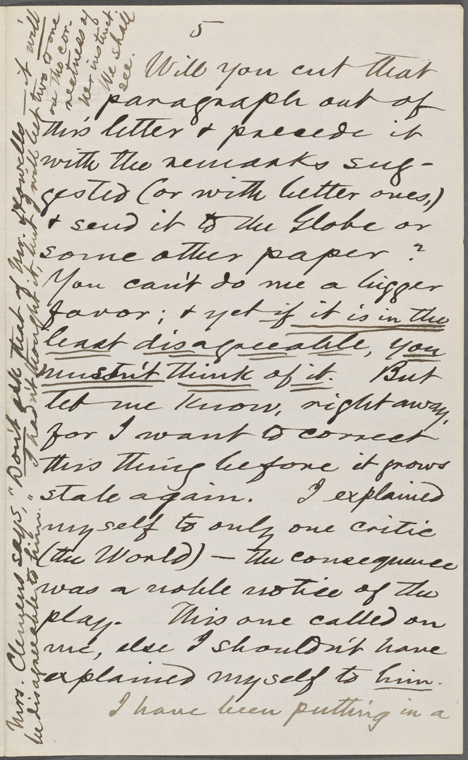 5
Will you cut that
paragraph out of
this letter & precede it
with the remarks sug-
gested (or with better ones,)
& send it to the Globe or
some other paper?
You can't do me a bigger
favor; & yet if it is in the
least disagreeable, you
mustn't think of it. But
let me know, right away,
for I want to correct
this thing before it grows
stale again. I explained
myself to only one critic
(the World) — the consequence
was a noble notice of the
play. This one called on
me, else I shouldn't have
explained myself to him.
I have been putting in a
Mrs. Clemens says, "Don't ask that of Mr. Howells — it will
be disagreeable to him." I hadn't thought it, but I will bet two to one
on the cor-
rectness of
her instinct.
We shall
see.